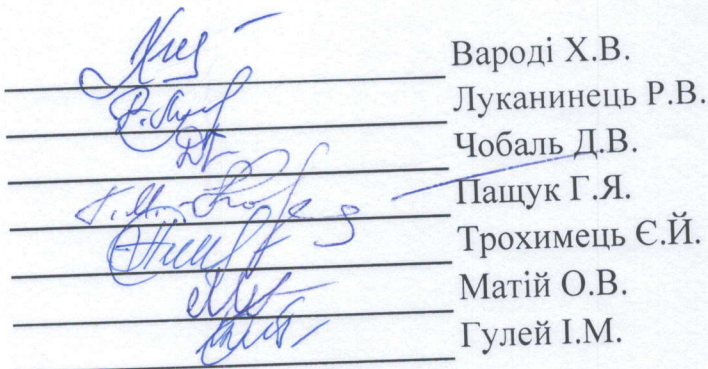 Вароді Х.В.
Луканинець Р.В.
Чобаль Д.В.
Пащук Г.Я.
Трохимець Є.Й.
Матій О.В.
Гулей І.М.